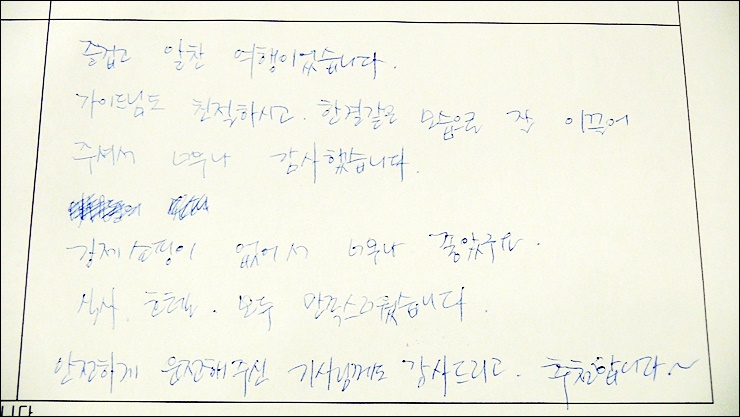 즐겁고 알찬 여행이었습니다.
가이드님도 친절하시고. 한결같은 모습으로 잘 이끌어
주셔서 너무나 감사했습니다.
강제쇼핑이 없어서 너무나 좋았구요.
식사. 호텔. 모두 만족스러웠습니다.
안전하게 운전해주신 기사님께도 감사드리고. 추천합니다.~
니다